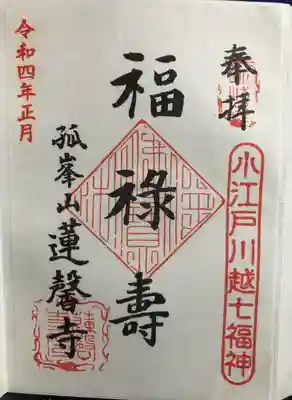 奉拝
小江戸川越七福神
福禄寿
孤峯山蓮馨寺
令和四年正月